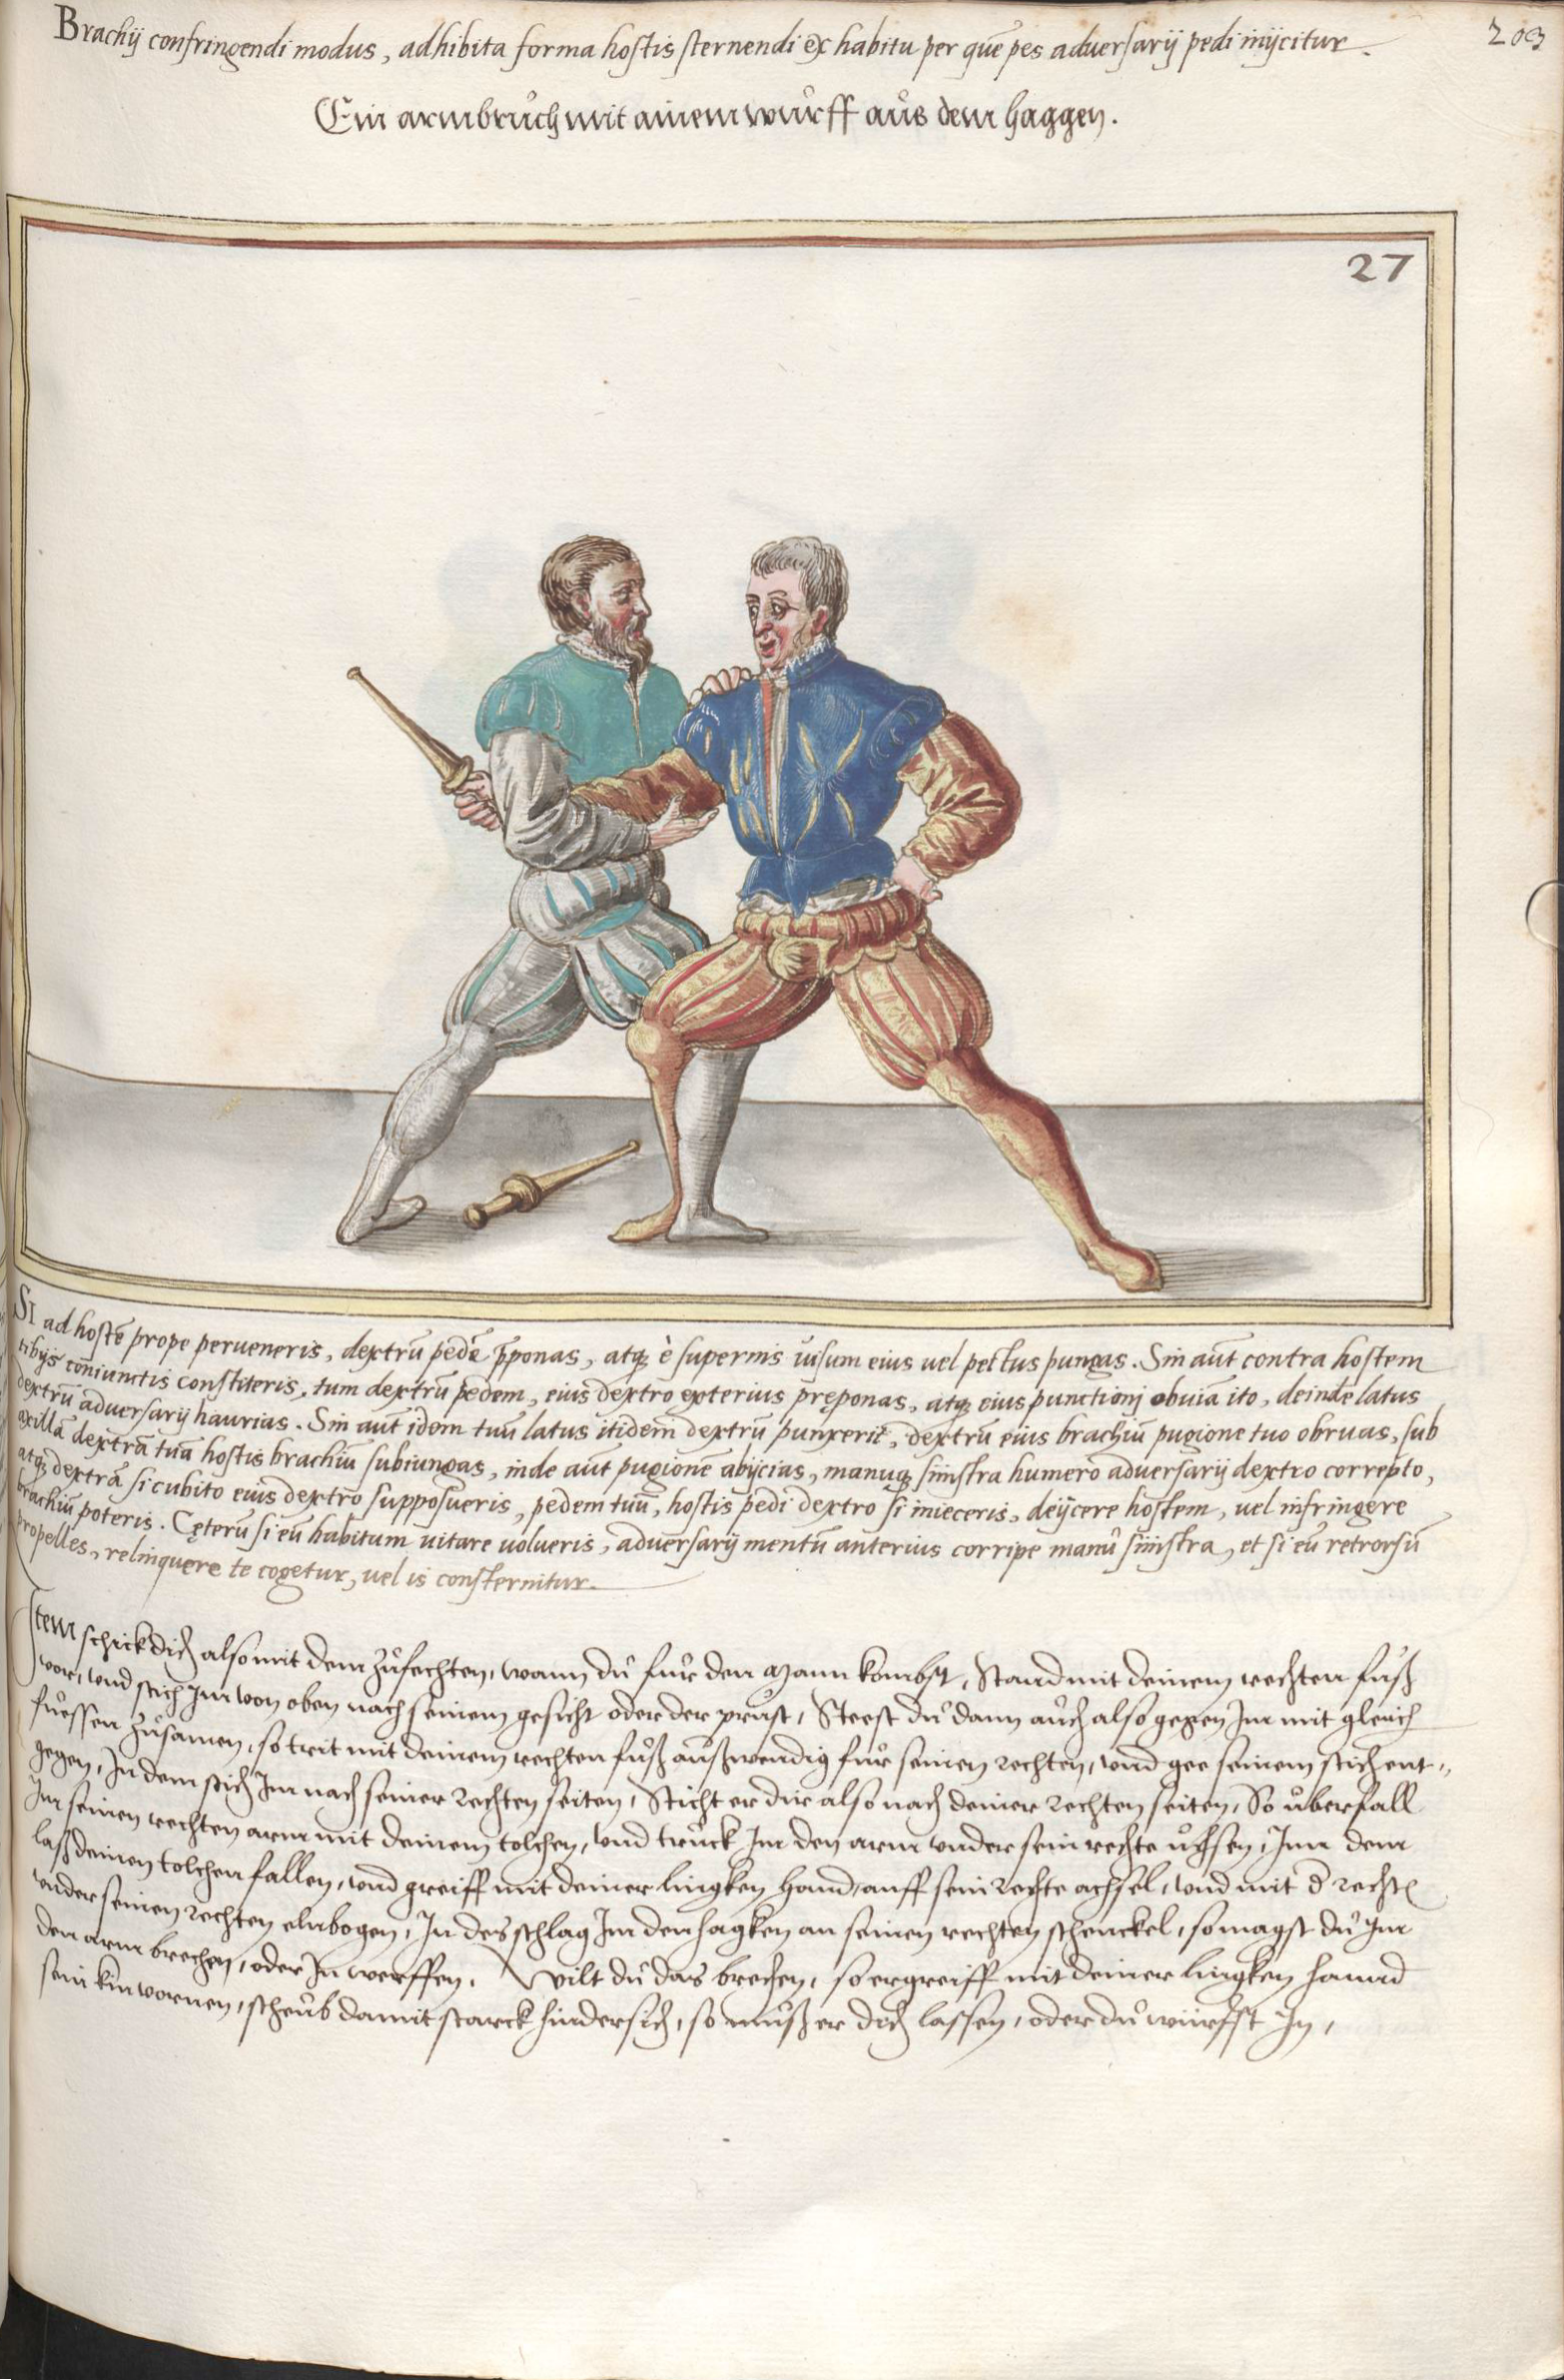 Brachij confringendi modus, adhibita forma hostis sternendi ex habitu per quē pes aduersarij pedi inijcitur.
203
Ein armbrůch mit ainem wůrff aůs dem haggen.
27
SI ad hostē prope perueneris, dextrū pedē p̄ponas, atq; è supernis uisum eius uel pectus pungas. Sin aut̄ contra hostem
tibijs coniunctis constiteris, tum dextrū pedem, eius dextro exterius pręponas, atq; eius punctioni obuiā ito, deinde latus
dextrū aduersarij haurias. Sin aut̄ idem tuū latus itidem dextrū punxerit, dextrū eius brachiū pugione tuo obruas, sub
axillā dextrā tuā hostis brachiū subiungas, inde aut̄ pugionē abijcias, manuq; sinistra humero aduersarij dextro correpto,
atq; dextrā si cubito eius dextro supposueris, pedem tuū, hostis pedi dextro si inieceris, deijcere hostem, uel infringere
brachiū poteris. Cęterū si eū habitum uitare uolueris, aduersarij mentū anterius corripe manu sinistra, et si eū retrorsū
propelles, relinquere te cogetur, uel is consternitur.
Item schick dich also mit dem zůfechten, wann dů fůr den man kombst, Stand mit deinem rechten fůß
vor, vnd stich Im von oben nach seinem gesicht oder der průst, Steest dů dann aůch also gegen Im mit gleich
fůessen zůsamen, so trit mit deinem rechten fůß aůßwendig fůr seinen rechten, vnd gee seinem stich ent„
gegen, In dem stich Im nach seiner rechten seiten, Sticht er dir also nach deiner rechten seiten, So ůberfall
Im seinen rechten arm mit deinem tolchen, vnd trůck Im den arm vnder sein rechte ůchsen, Inn dem
laß deinen tolchen fallen, vnd greiff mit deiner lingken hand, auff sein rechte achsel, vnd mit d̄ rechtē
vnder seinen rechten elnbogen, In des schlag Im den hagken an seinen rechten schenckel, so magst dů Im
den arm brechen, oder In werffen. Wilt dů das brechen, so ergreiff mit deiner lingken hannd
sein kin vornen, scheůb damit starck hindersich, so můß er dich lassen, oder dů würfst In,